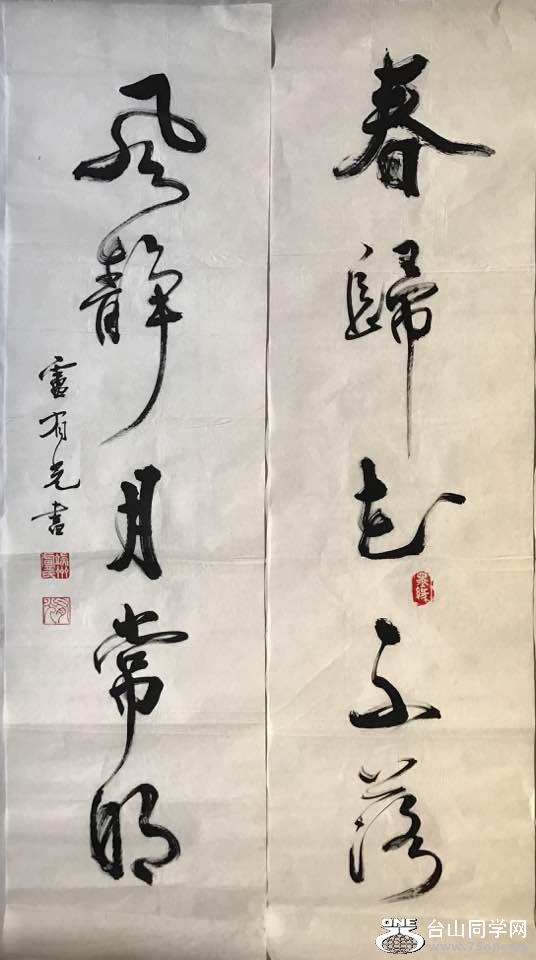 春歸花不落
風靜月常明
雷有光書
ONE
台山同学网